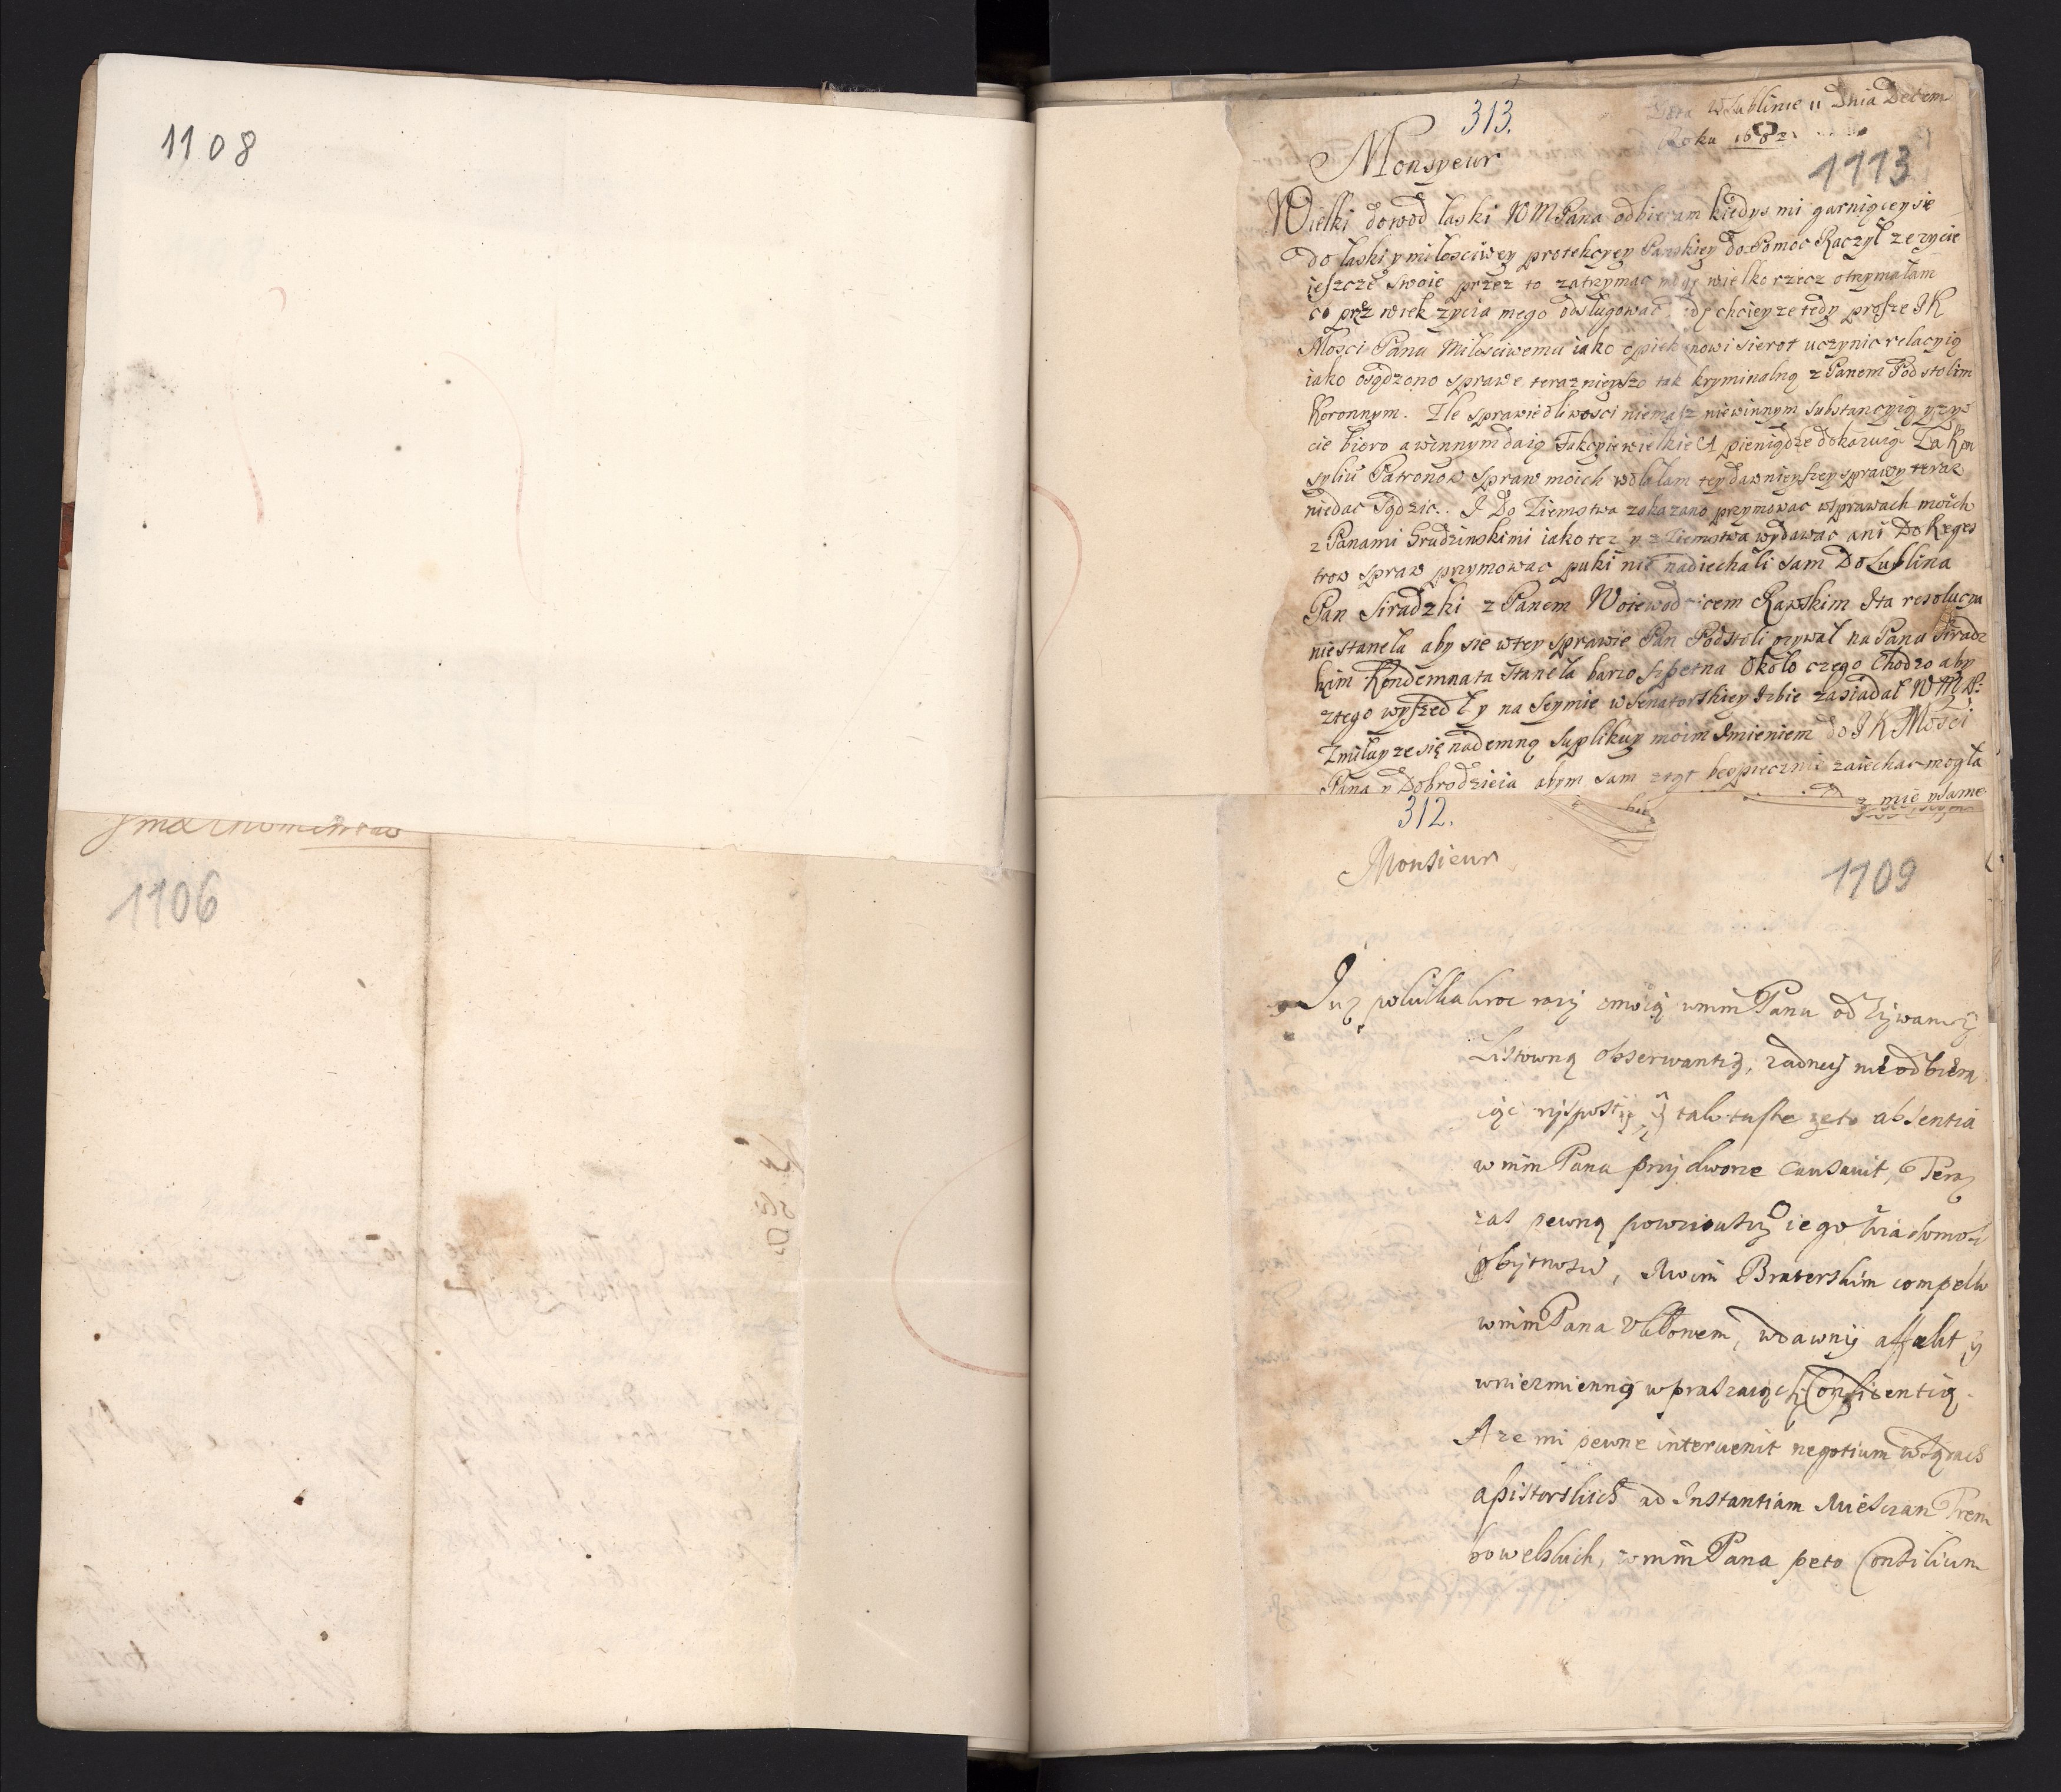 1108
Jmci
1106
313.
Data w Lublinie 11 Dnia Decem
Roku 1682
Monsyeur
1113
Wielki dowod laski WM Pana odbieram kiedys mi garnięcey się
do laski y milosciwey protekcyey Panskiey doPomoc Raczył ze zycie
ieszcze swoie przez to zatrzymac mogę wielko rzecz otrzymałam
co prez wiek zycia mego odsługować chcieyze tedy prosze JK
Mosci Panu Milosciwemu iako opiekunowi sierot uczynic relacyią
iako osądzono sprawe teraznieyszo tak kryminalną z Panem Podstolim
Koronnym. Zle sprawiedliwosci niemasz niewinnym substancyią y zy
cie bioro a winnym daią Fakcyie wielkie A pieniądze dokazuią Za Kon
syliu Patronow spraw moich wolałam tey dawnieyszey sprawy teraz
niedac sądzic. I Do Ziemstwa zakazano przymowac w sprawach moich
z Panami Grudzinskimi iako tez y z Ziemstwa wydawac ani Do Reges
trow spraw przymowac puki nie nadiechali sam Do Lublina
Pan Siradzki z Panem Woiewodzicem Rawskim Ita resolucya
nie staneła aby sie w tey sprawie Pan Podstoli ozywał na Panu Siradz
kim Kondemnata staneła barzo szpetna Około czego Chodzo aby
z tego wyszedł y na Seymie w Senatorskiey Izbie zasiadał WMP:
Zmiłuyze się nademną suplikuy moim Imieniem do JK Mosci
Pana y Dobrodzieia abym sam zyt bespiecznie zaiechac mogła
z mie same
312.
Monsieur
1109
Juz polkilkakroc razy zmoią wmm Panu odzywam się
Listowną obserwantią, zadney nieodbiera
iąc risposty, y talw tuste zeto absentia
wmm Pana przy dworze causavit, Teraz
zas pewną powziowszy o iego wiadomosc
bytnosci, Moim Braterskim compello
wmm Pana Uklonem, w dawny affekt y
w niezmienną wpraszaiąc się Confidentią.
A ze mi pewne intervenit negotium w Sądach
apisterskich ad Instantiam Miesczan Trem
bowelskich, wmm Pana peto Consilium